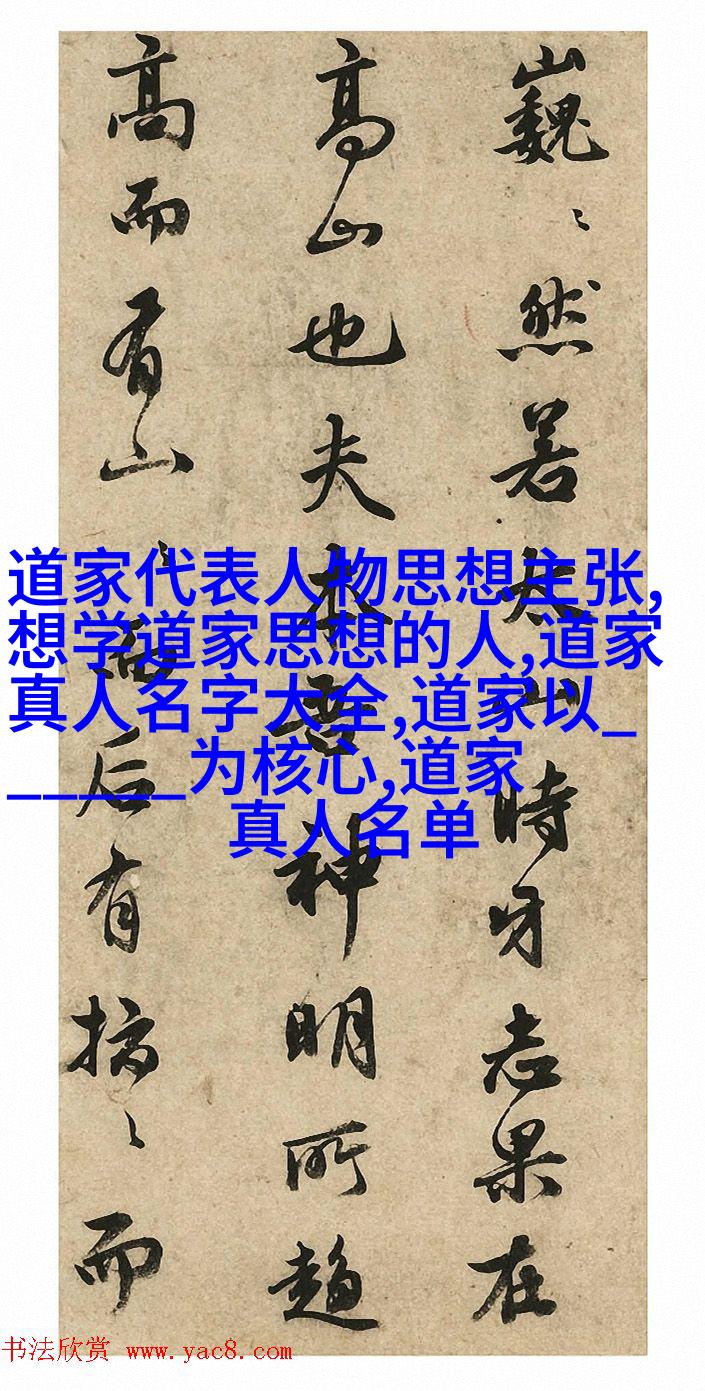 巍〻然若太山時牙志果在
高山也夫神明所趨
高而有山后有〻而
道家代表人物思想主张,
想学道家思想的人,道家
真人名字大全,道家以_
______为核心,道家
真人名单
书法欣赏 www.yac8.com